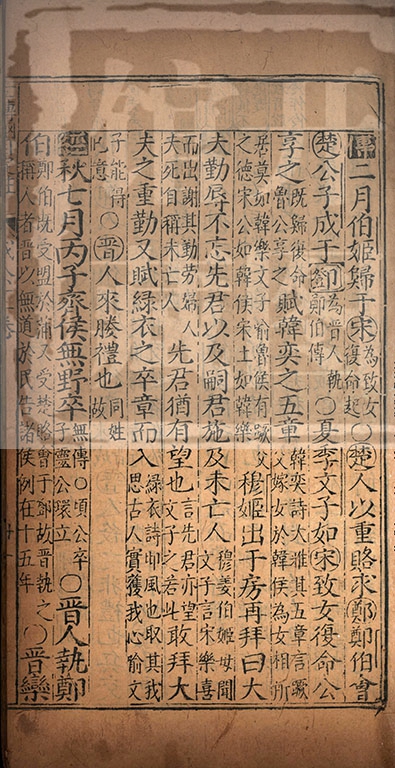 二月伯姬歸于宋為致女復命起○楚人以重賂求鄭鄭伯會
楚公子成于鄧為晉人執鄭伯傳○夏季文子如宋致女復命公
享之既歸復命魯公享之賦韓奕之五章韓奕詩大雅其五章言蹶父嫁女於韓侯為女相所
居莫如韓樂文子喻魯侯有蹶父之德宋公如韓侯宋土如韓樂穆姜出于房再拜曰大
夫勤辱不忘先君以及嗣君施及未亡人穆姜伯姬母聞文子言宋樂喜
而出謝其勤勞婦人夫死自稱未亡人先君猶有望也言先君亦望文子之若此敢拜大
夫之重勤又賦綠衣之卒章而入綠衣詩邶風也取其我思古人實獲我心喻文
子能得己意○晉人來媵禮也同姓故
經秋七月丙子齊侯無野卒無傳○頃公卒子靈公環立○晉人執鄭
伯鄭伯既受盟于蒲又受楚賂會于鄧故晉執之稱人者晉以無道於民告諸侯例在十五年○晉欒